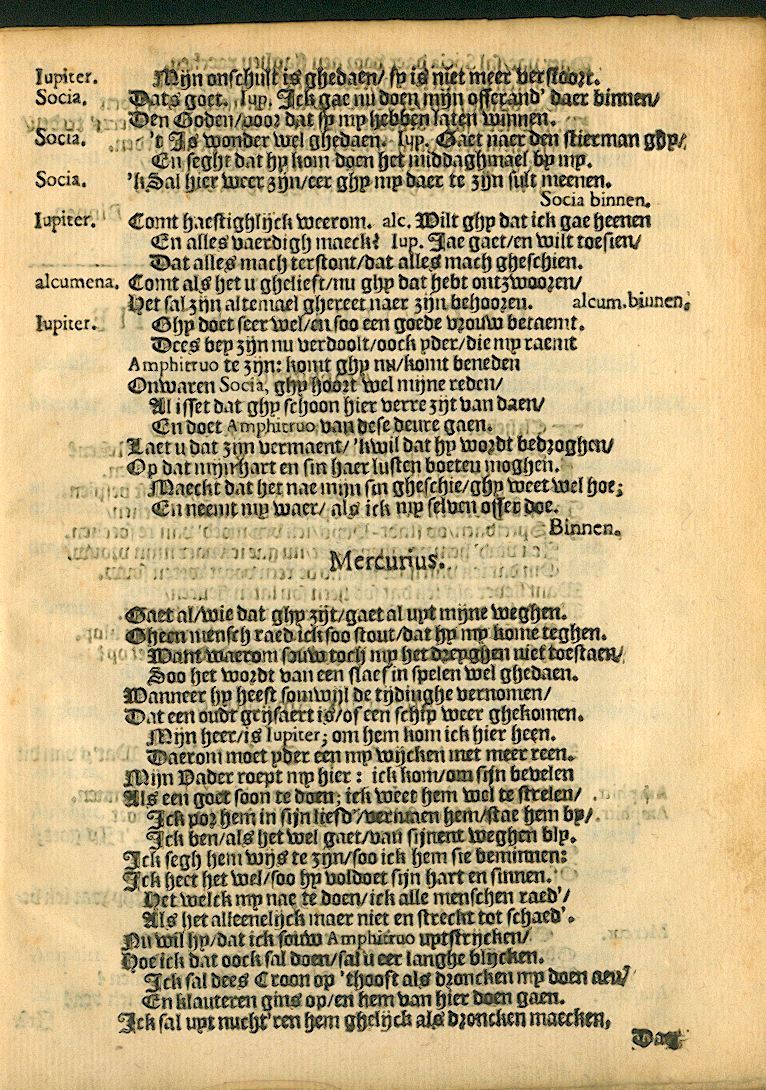 Iupiter. Mijn onschult is ghedaen/ sy is niet meer verstoort.
Socia. Dats goet. Iup. Ick gae nu doen mijn offerand' daer binnen/
Den Goden/voor dat sy my hebben laten winnen.
Socia. 't Is wonder wel ghedaen. Iup. Gaet naer den stierman ghy/
En seght dat hy kom doen het middaghmael by my.
Socia. 'k Sal hier weer zijn/eer ghy my daer te zijn sult meenen.
Socia binnen.
Iupiter. Comt haestighlijck weerom. alc. Wilt ghy dat ick gae heenen
En alles vaerdigh maeck? Iup. Jae gaet/en wilt toesien/
Dat alles mach terstont/dat alles mach gheschien.
alcumena. Comt als het u ghelieft/nu ghy dat hebt ontzwooren/
Het sal zijn altemael ghereet naer zijn behooren. alcum.binnen.
Iupiter. Ghy doet seer wel/en soo een goede vrouw betaemt.
Dees bey zijn nu verdoolt/oock yder/die my raemt
Amphitruo te zijn: komt ghy nu/komt beneden
Onwaren Socia, ghy hoort wel mijne reden/
Al isset dat ghy schoon hier verre zijt van daen/
En doet Amphitruo van dese deure gaen.
Laet u dat zijn vermaent/'kwil dat hy wordt bedroghen/
Op dat mijn hart en sin haer lusten boeten moghen.
Maeckt dat het nae mijn sin gheschie/ghy weet wel hoe;
En neemt my waer/ als ick my selven offer doe.
Binnen.
Mercurius.
Gaet al/wie dat ghy zijt/gaet al uyt mijne weghen.
Gheen mensch raed ick soo stout/dat hy my kome teghen.
Want waerom souw toch my het dreyghen niet toestaen/
Soo het wordt van een slaef in spelen wel ghedaen.
Wanneer hy heeft somwijl de tijdinghe vernomen/
Dat een oudt grijsaert is/of een schip weer ghekomen.
Mijn heer/is Iupiter; om hem kom ick hier heen.
Daerom moet yder een my wijcken met meer reen.
Mijn Vader roept my hier: ick kom/om sijn bevelen
Als een goet soon te doen; ick weet hem wel te strelen/
Ick por hem in sijn liefd'/vermaen hem/stae hem by/
Ick ben/als het wel gaet/van sijnent weghen bly.
Ick segh hem wijs te zijn/soo ick hem sie beminnen:
Ick heet het wel/soo hy voldoet sijn hart en sinnen.
Het welck my nae te doen/ick alle menschen raed'/
Als het alleenelijck maer niet en streckt tot schaed'.
Nu wil hy/dat ick souw Amphitruo uytstrijcken/
Hoe ick dat oock sal doen/sal u eer langhe blijcken.
Ick sal dees Croon op 'thooft als droncken my doen aen/
En klauteren gins op/en hem van hier doen gaen.
Ick sal uyt nucht'ren hem ghelijck als droncken maecken,
Dat